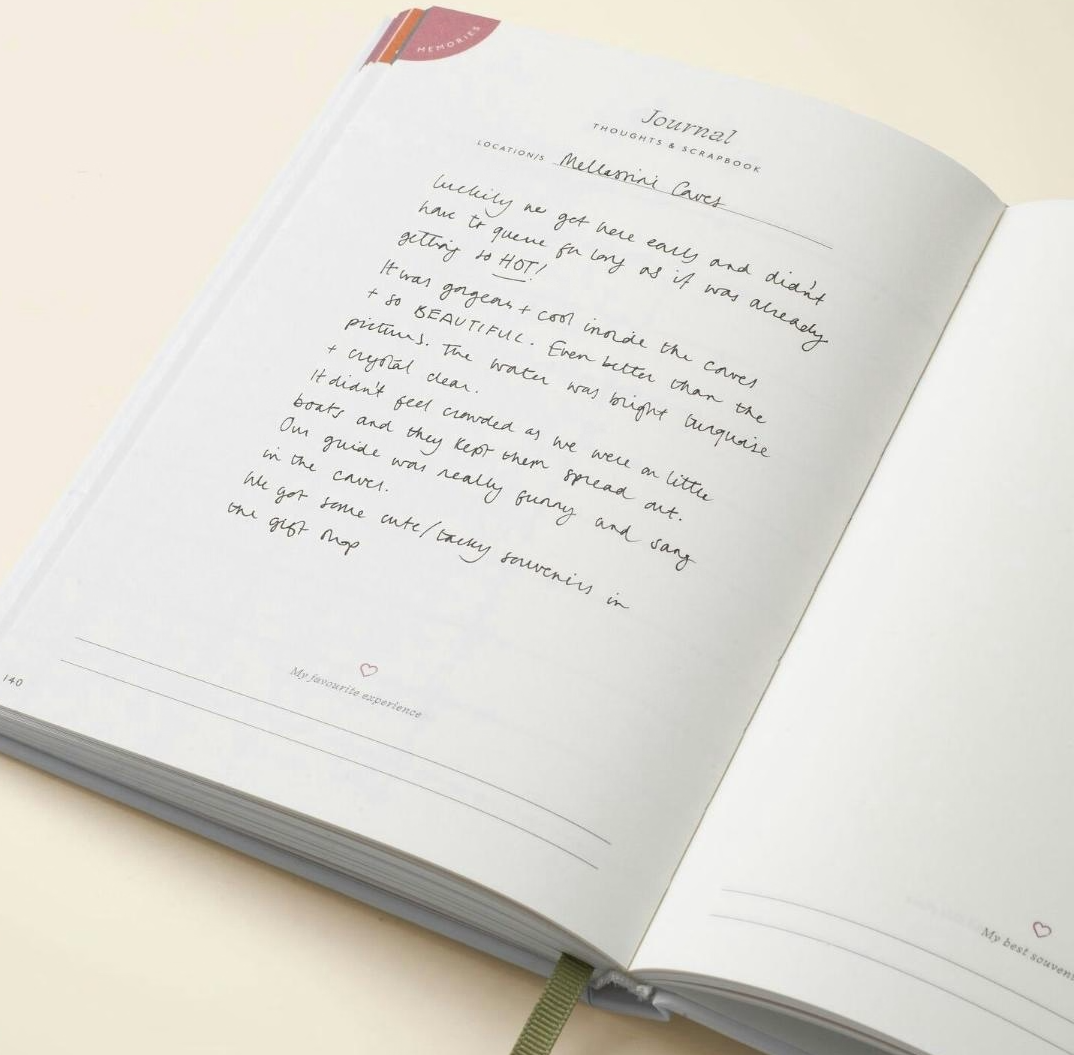 MEMORIES
Journal
THOUGHTS & SCRAPBOOK
LOCATION/S Mellassini Caves
luckily we got here early and didn't
have to queue for long as it was already
getting so HOT!
It was gorgeous + cool inside the caves
+ so BEAUTIFUL. Even better than the
pictures. The water was bright turquoise
+ crystal clear.
It didn't feel crowded as we were on little
boats and they kept them spread out.
Our guide was really funny and sang
in the caves.
We got some cute/tacky souvenirs in
the gift shop
My favourite experience
140
My best souveni